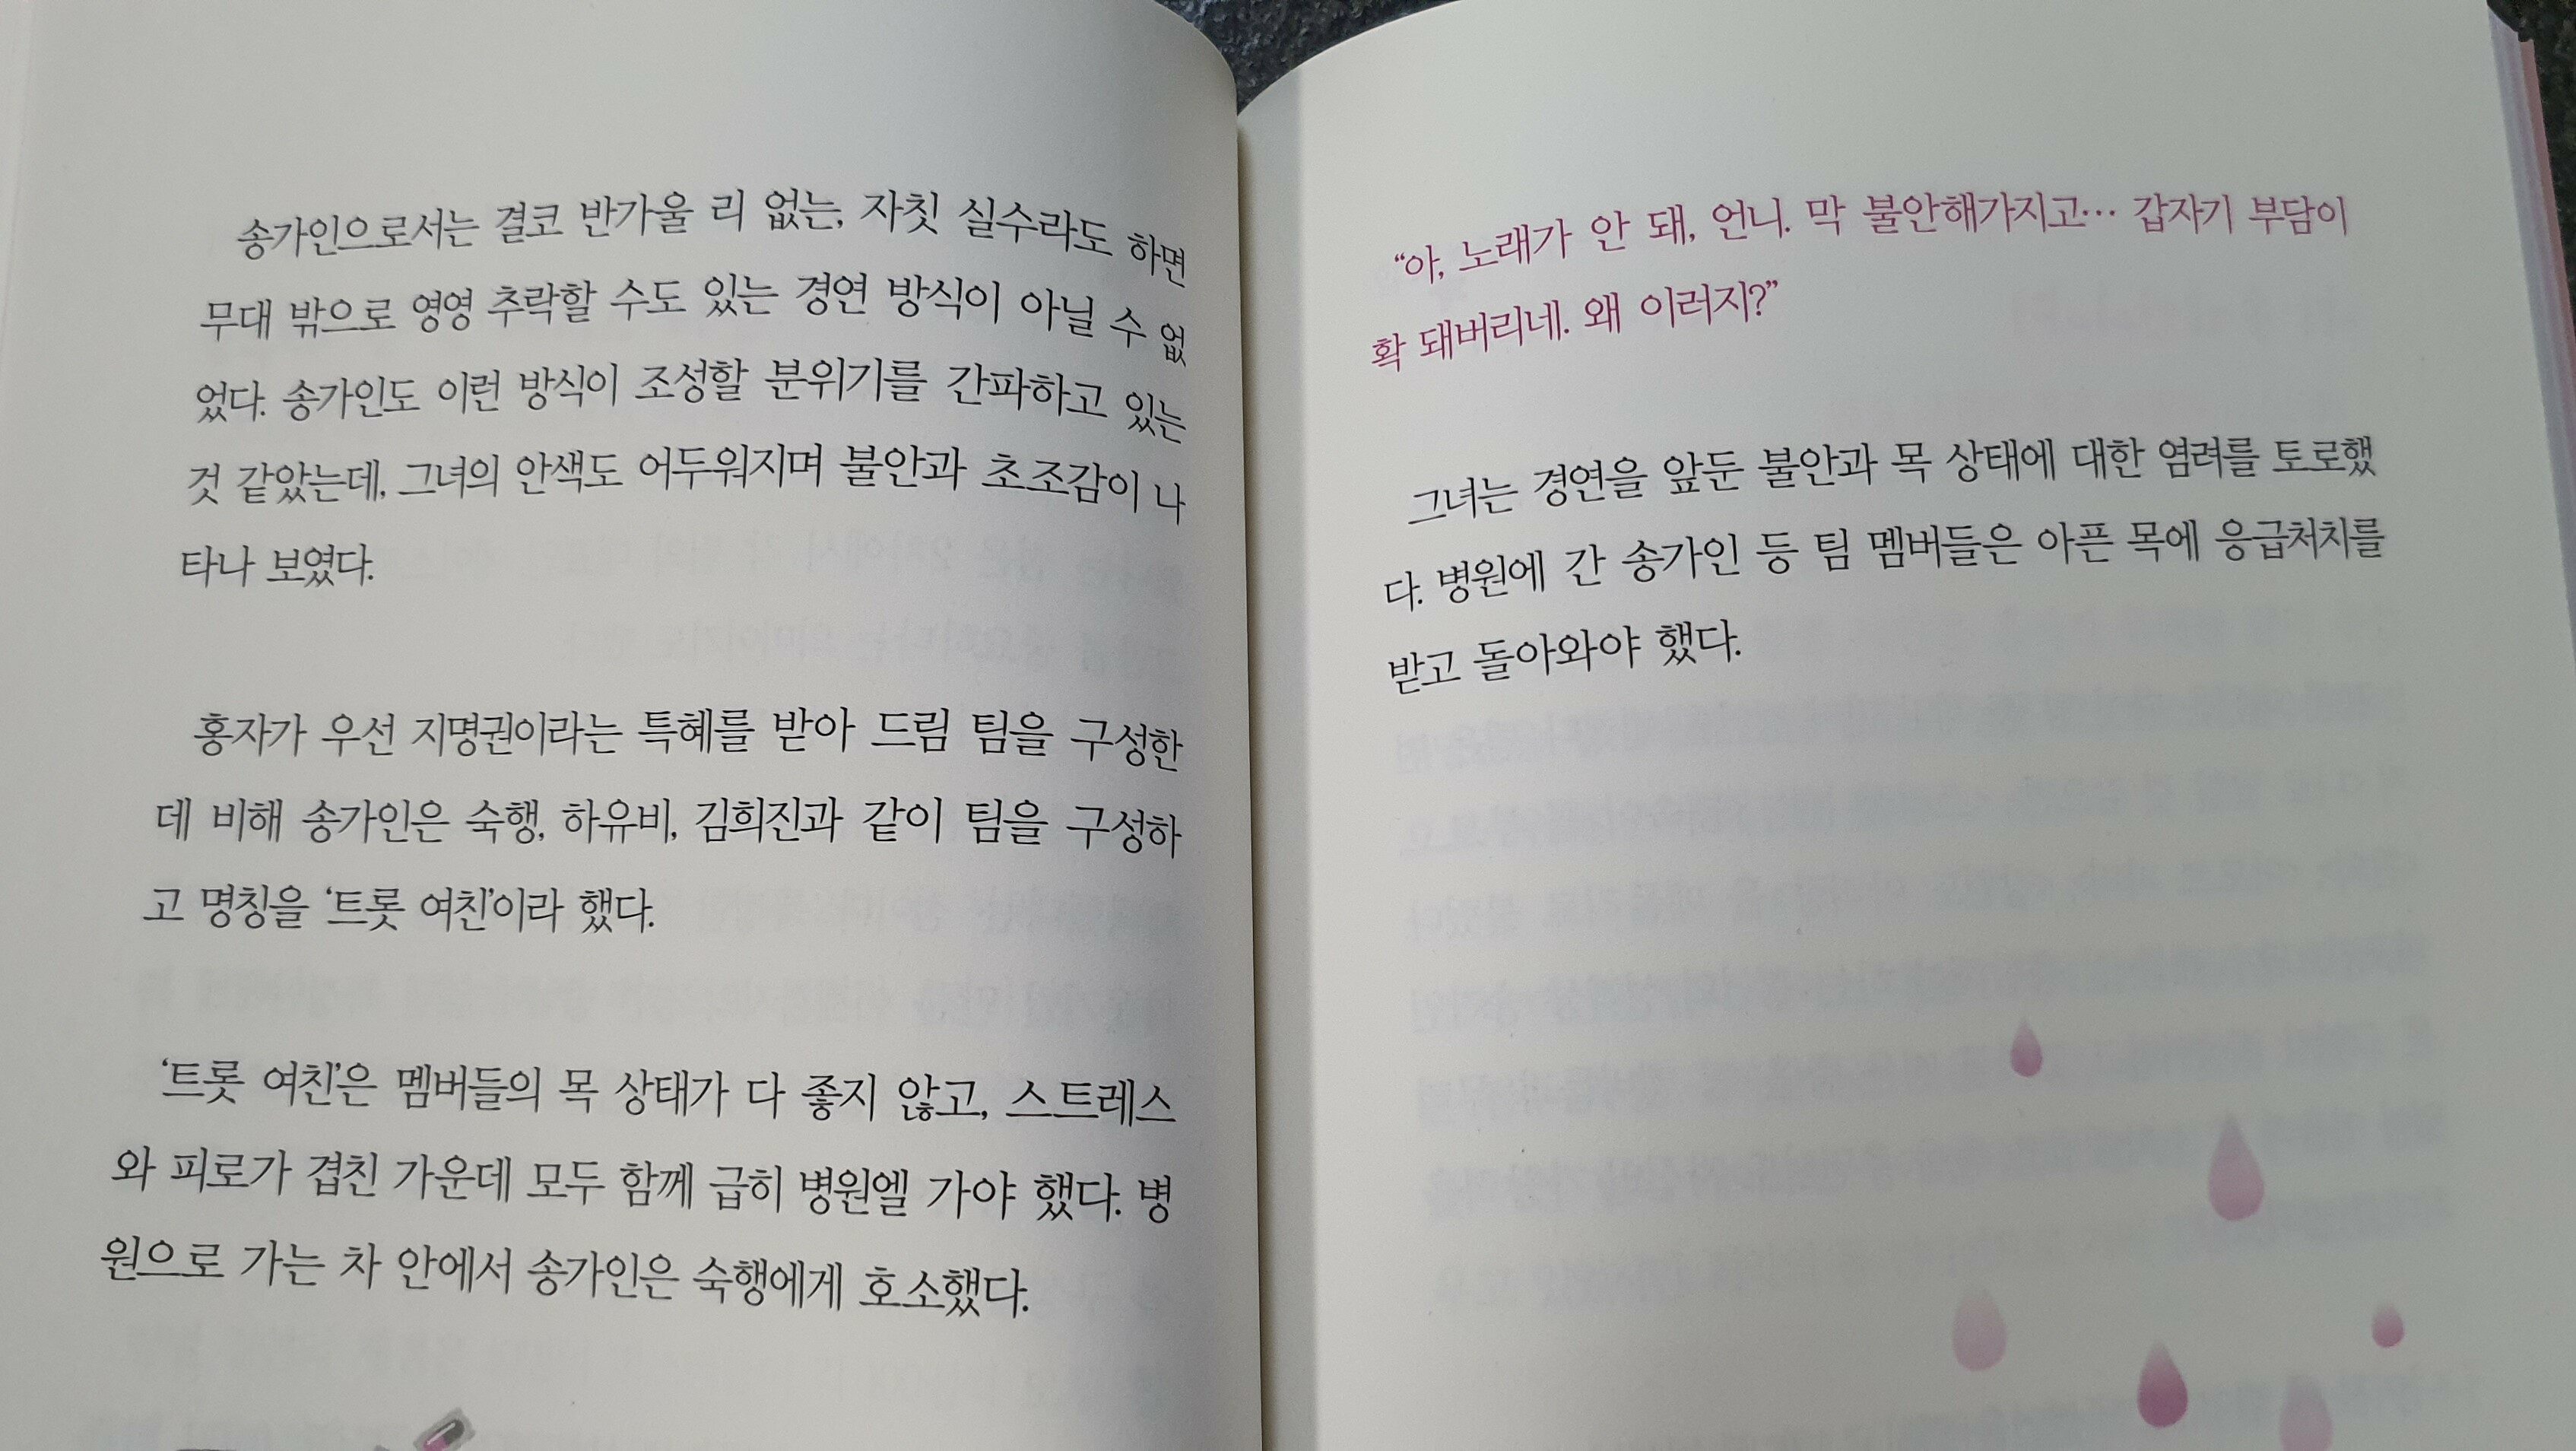 송가인으로서는 결코 반가울 리 없는, 자칫 실수라도 하면
무대 밖으로 영영 추락할 수도 있는 경연 방식이 아닐 수 없
었다. 송가인도 이런 방식이 조성할 분위기를 간파하고 있는
것 같았는데, 그녀의 안색도 어두워지며 불안과 초조감이 나
타나 보였다.
홍자가 우선 지명권이라는 특혜를 받아 드림 팀을 구성한
데 비해 송가인은 숙행, 하유비, 김희진과 같이 팀을 구성하
고 명칭을 ‘트롯 여친’이라 했다.
‘트롯 여친’은 멤버들의 목 상태가 다 좋지 않고, 스트레스
와 피로가 겹친 가운데 모두 함께 급히 병원엘 가야 했다. 병
원으로 가는 차 안에서 송가인은 숙행에게 호소했다.
“아, 노래가 안 돼, 언니. 막 불안해가지고… 갑자기 부담이
확 돼버리네. 왜 이러지?”
그녀는 경연을 앞둔 불안과 목 상태에 대한 염려를 토로했
다. 병원에 간 송가인 등 팀 멤버들은 아픈 목에 응급처치를
받고 돌아와야 했다.